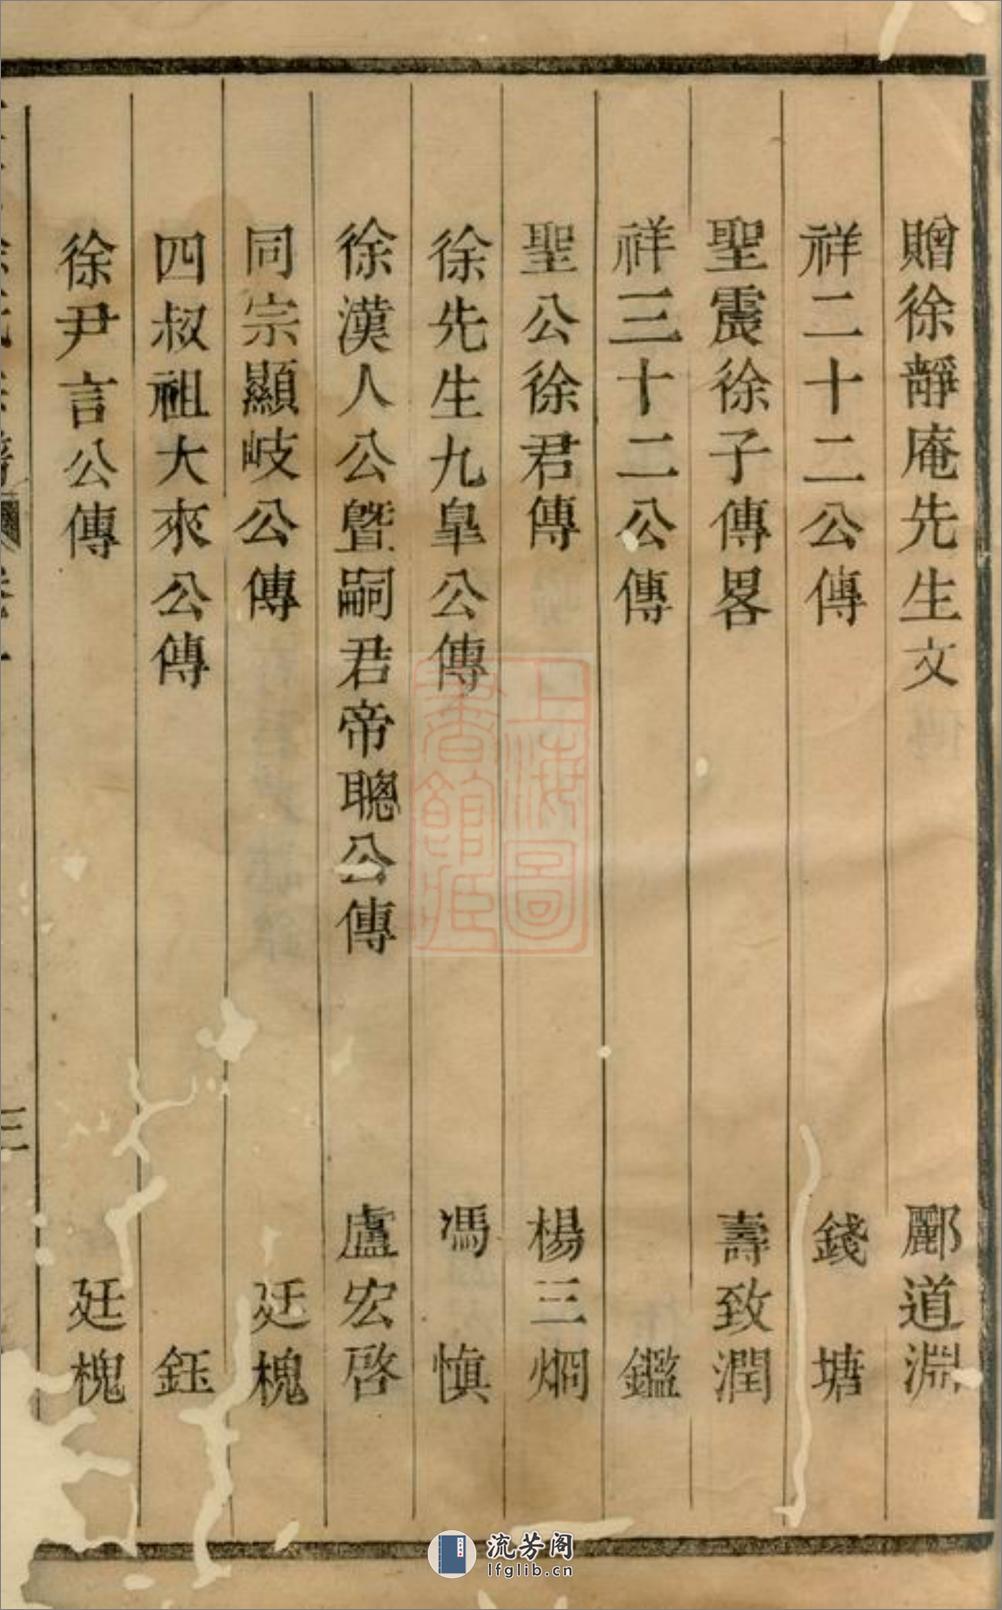 贈徐靜庵先生文 酈道淵
祥二十二公傳 錢塘
聖震徐子傳畧 壽致潤
祥三十二公傳 鑑
聖公徐君傳 楊三炯
徐先生九臯公傳 馮慎
徐漢人公曁嗣君帝聰公傳 盧宏啓
同宗顯岐公傳 廷槐
四叔祖大來公傳 鈺
徐尹言公傳 廷槐
三
上海圖書館藏
流芳阁
lfglib.cn